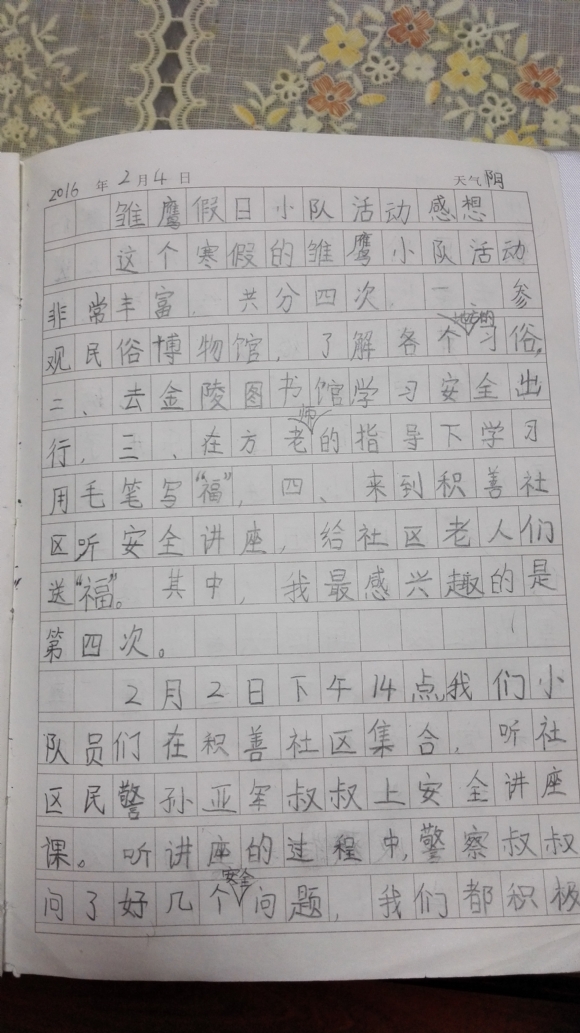 2016年2月4日 天气阴
雏鹰假日小队活动感想
这个寒假的雏鹰小队活动
非常丰富，共分四次，一、参
观民俗博物馆，了解各个地方的习俗，
二、去金陵图书馆学习安全出
行，三、在方老师的指导下学习
用毛笔写“福”，四、来到积善社
区听安全讲座，给社区老人们
送“福”。其中，我最感兴趣的是
第四次。
2月2日下午14点我们小
队员们在积善社区集合，听社
区民警孙亚军叔叔上安全讲座
课。听讲座的过程中，警察叔叔
问了好几个安全问题，我们都积极